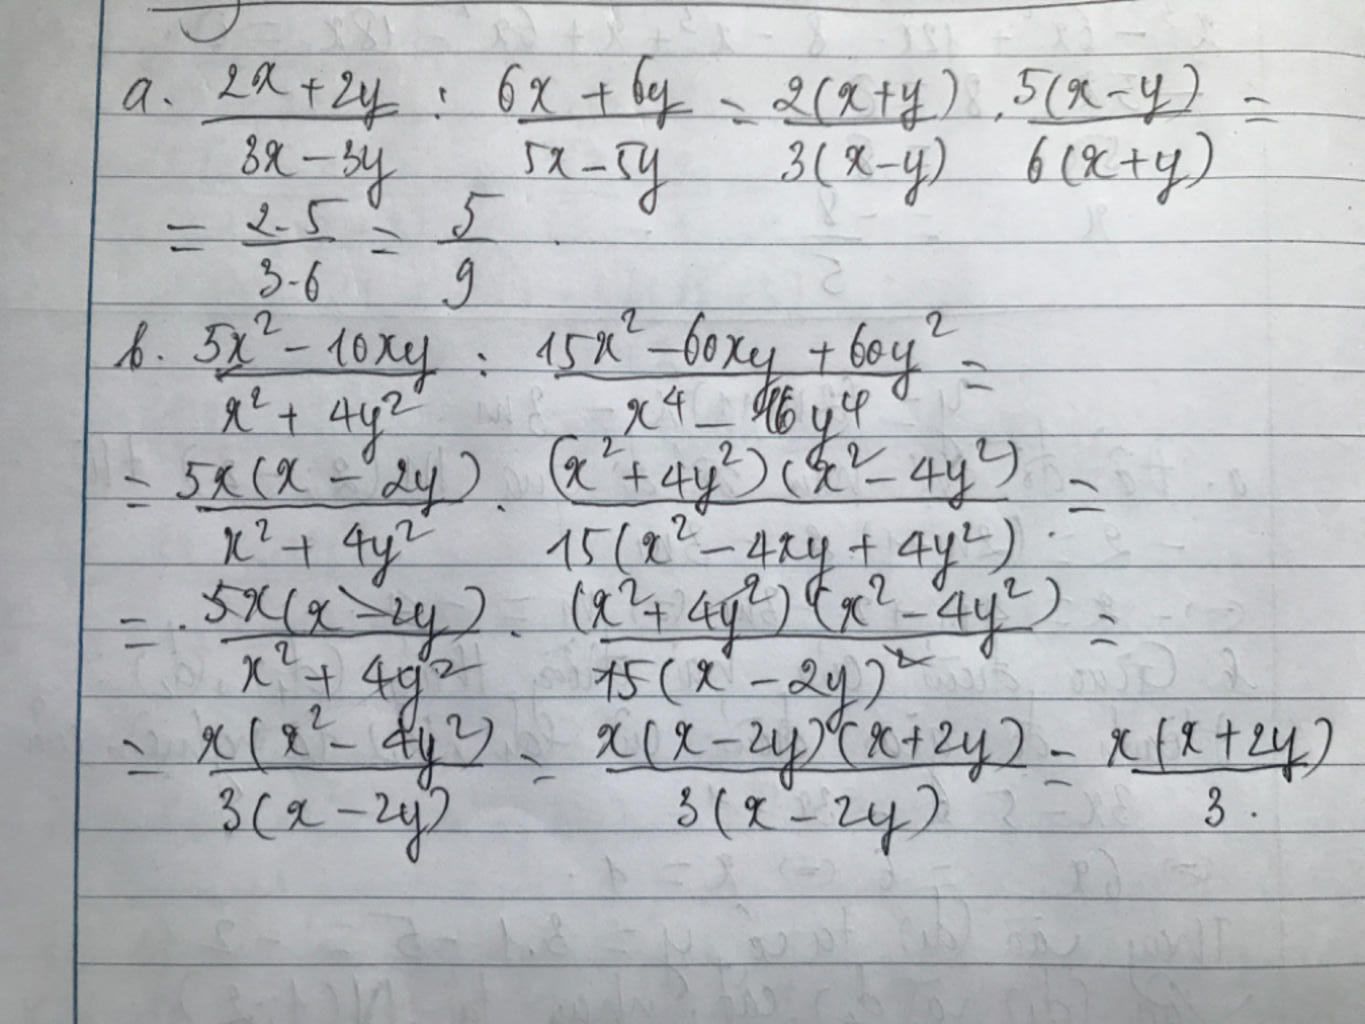 a. \frac{2x+2y}{3x-3y} : \frac{6x+6y}{5x-5y} = \frac{2(x+y)}{3(x-y)} . \frac{5(x-y)}{6(x+y)} =
= \frac{2.5}{3.6} = \frac{5}{9}
b. \frac{5x^2-10xy}{x^2+4y^2} : \frac{15x^2-60xy+60y^2}{x^4-16y^4} =
= \frac{5x(x-2y)}{x^2+4y^2} . \frac{(x^2+4y^2)(x^2-4y^2)}{15(x^2-4xy+4y^2)} =
= \frac{5x(x-2y)}{x^2+4y^2} . \frac{(x^2+4y^2)(x^2-4y^2)}{15(x-2y)^2} =
= \frac{x(x^2-4y^2)}{3(x-2y)} = \frac{x(x-2y)(x+2y)}{3(x-2y)} = \frac{x(x+2y)}{3}.